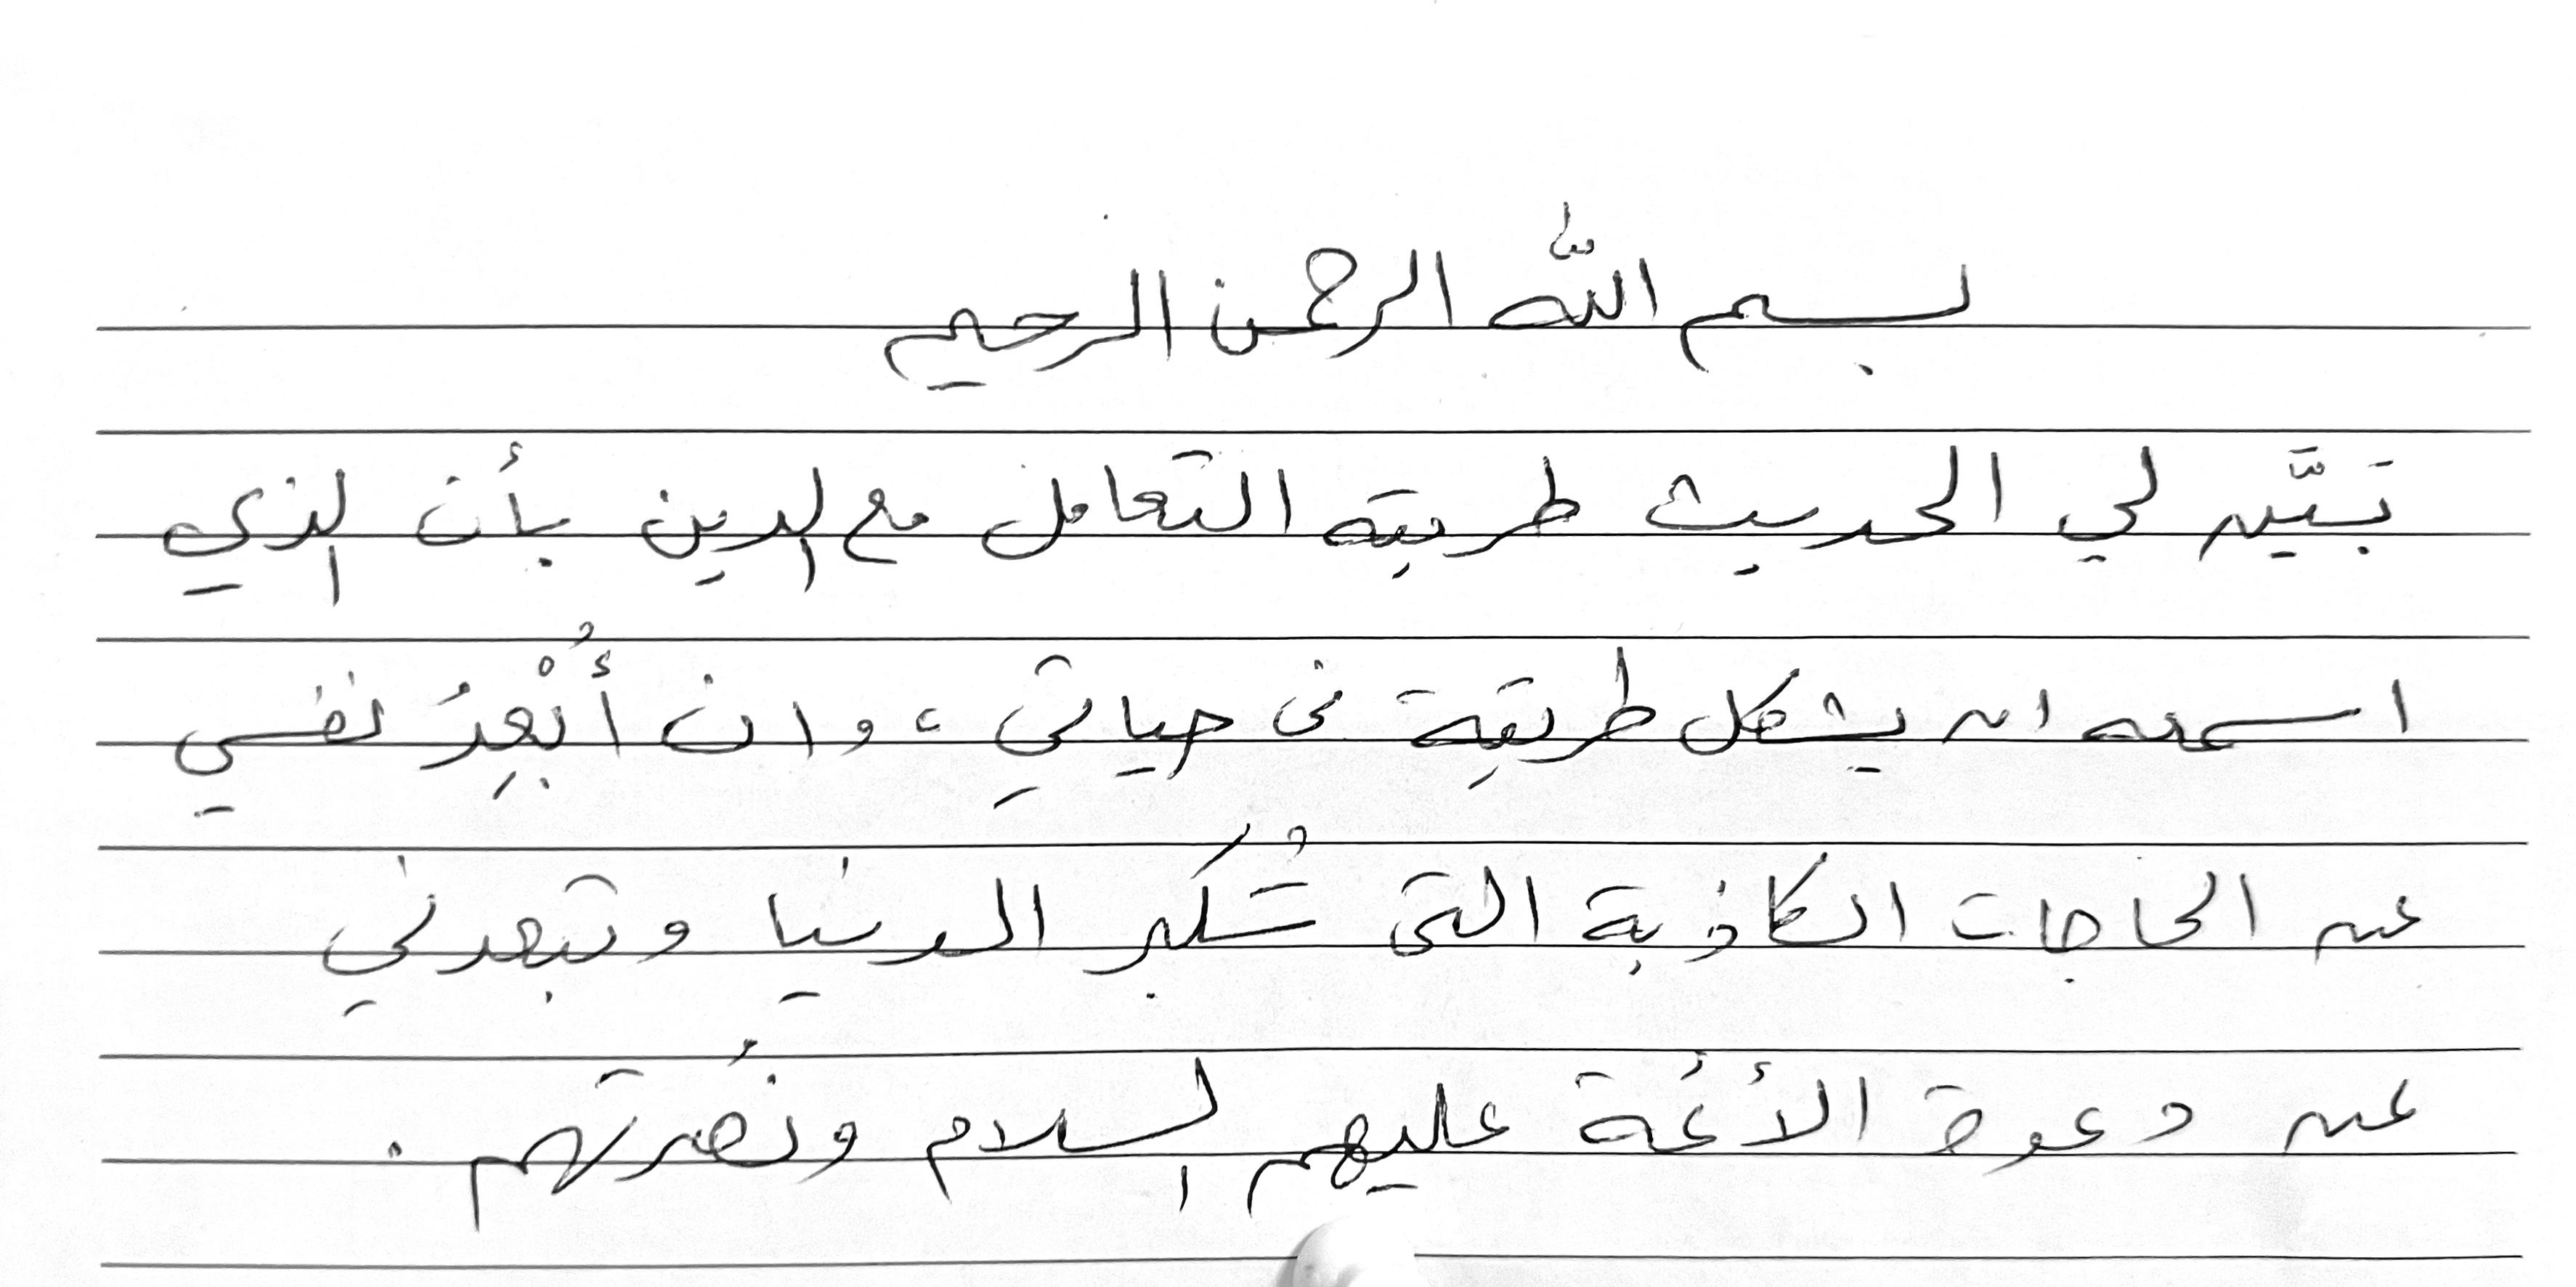 بسم اللّٰه الرحمن الرحيم
تَبَيَّن لي الحديث طريقة التعامل مع الدين بأن الذي
اسمعه ان يشكل طريقة في حياتي، وان أُبْعِدُ نفسي
عن الحاجات الكاذبة التي تُكَبر الدنيا وتبعدني
عن دعوة الأئمة عليهم السلام ونُصرتهم.